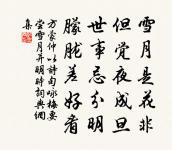 雪月並花非
但觉夜成旦
世事忌分明
朦胧差好看
方蒙仲以诗句咏梅要
尝雪月并明时词典倜
集